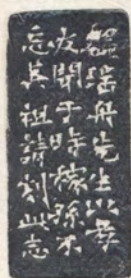 瑞舟先生以孝
友聞于時稼孫不
忘其祖請刻此志